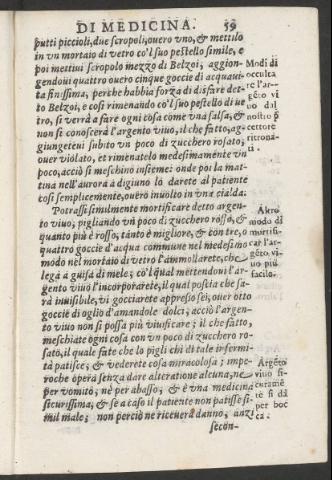 DI MEDICINA. 59
putti piccioli, due scropoli, ouero vno, & mettilo
in vn mortaio di vetro co'l suo pestello simile, e
poi mettiui scropolo mezzo di Belzoi, aggion-
gendoui quattro ouero cinque goccie di acquaui-
ta finissima, perche habbia forza di disfare det-
to Belzoi, e cosi rimenando co'l suo pestello di ue
tro, si verrà a fare ogni cosa come vna salsa, &
non si conoscerà l'argento uiuo, il che fatto, ag-
giungeteui subito vn poco di zucchero rosato,
ouer violato, et rimenatelo medesimamente vn
poco, acciò si meschino insieme: onde poi la mat-
tina nell'aurora a digiuno lo darete al patiente
cosi semplicemente, ouero inuolto in vna cialda.
Potrassi similmente mortificare detto argen-
to viuo; pigliando vn poco di zucchero rosso, &
quanto più è rosso, tanto è migliore, & con tre, o
quattro goccie d'acqua commune nel medesimo
modo nel mortaio di vetro l'ammollarete, che
lega a guisa di mele; co'l qual mettendoui l'ar-
gento uiuo l'incorporarete, il qual poscia che sa-
rà inuisibile, vi gocciarete appresso sei, ouer otto
goccie di oglio d'amandole dolci, acciò l'argen-
to viuo non si possa più viuificare; il che fatto,
meschiate ogni cosa con vn poco di zucchero ro-
sato, il quale fate che lo pigli chi di tale infermi-
tà patisce, & vederete cosa miracolosa; impe-
roche opera senza dare alteratione alcuna, ne
per vomito, nè per abasso; & è vna medicina
sicurissima, & se a caso il patiente non patisse si-
mil male; non perciò ne riceuerà danno, anzi
secon-
Modi di
occulta
re l'ar-
gẽto vi
uo dal
nostro p
cettore
ritroua-
ti.
Altro
modo di
mortifi-
car l'ar-
gẽto, vi-
uo più
facile.
Argẽto
viuo si-
curamẽ
te si dà
per boc
ca.